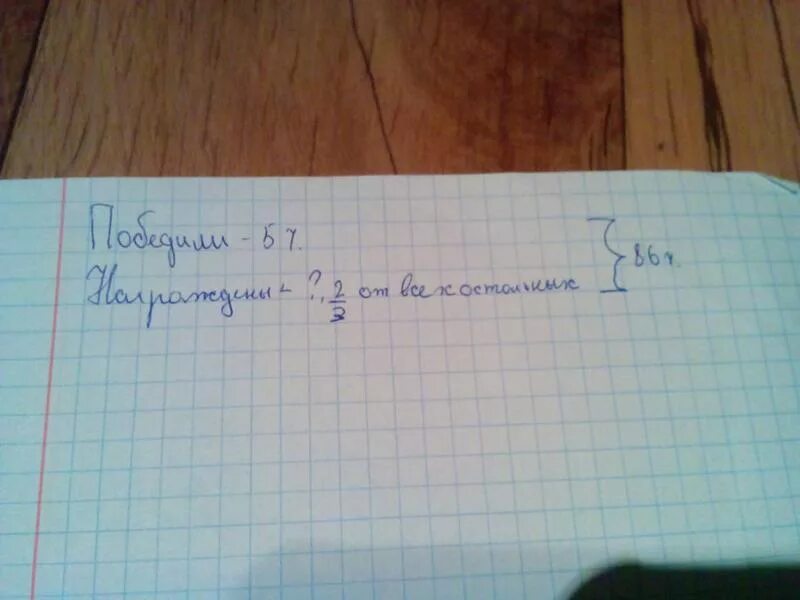 Победили - 5 ч.
Награждены - ?, 2/3 от всех остальных } 86 ч.